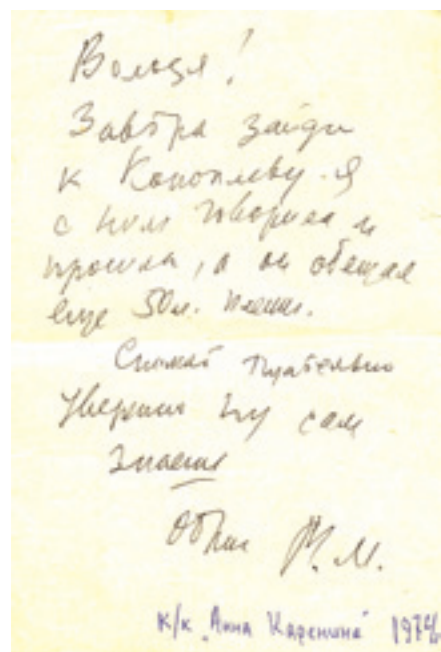 Володя!
Завтра зайди
к Коноплеву. Я
с ним говорила и
просила, а он обещал
еще 50м. пленки.
Снимай тщательно
сам
знаешь
М.М.
к/к "Анна Каренина" 1974